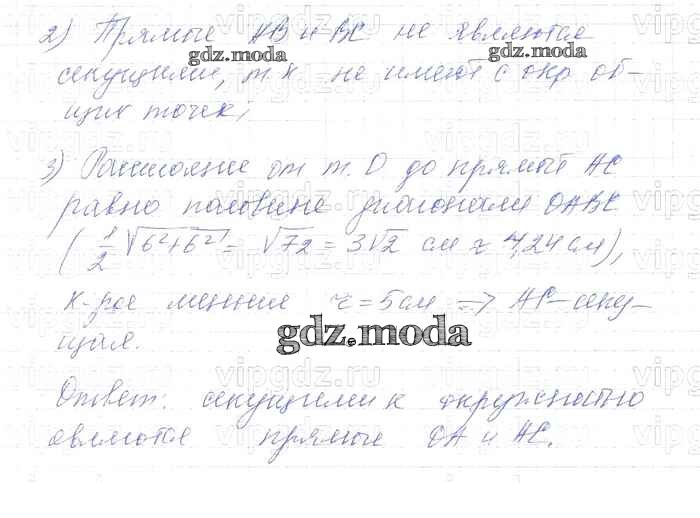 2) Прямые AB и BC не являются
gdz.moda
gdz.moda
секущими, т.к. не имеют с окр. об-
щих точек;
3) Расстояние от т. O до прямой AC
равно половине диагонали OABC
( 1/2 √6²+6² = √72 = 3√2 см ≈ 4,24 см),
к-рое меньше r = 5 см => AC - секу-
щая.
gdz.moda
Ответ: секущими к окружностью
являются прямые OA и AC.
vipgdz.ru